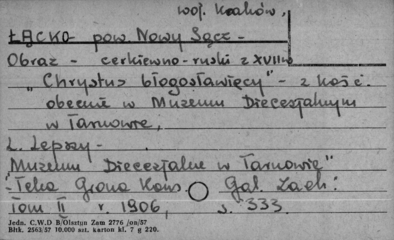 woj. Kraków,
ŁĄCKO - pow. Nowy Sącz -
Obraz - cerkiewno-ruski z XVIII w
„Chrystus błogosławięcy" - z kość.
obecnie w Muzeum Diecezjalnym
w Tarnowie,
L. Lepszy -
Muzeum Diecezjalne w Tarnowie"
"Teka Grona Kons. Gal. Zach:
Tom II r. 1906, s. 333.
Jedn. C.W.D B/Olsztyn Zam 2776 /on/57
Błtk. 2563/57 10.000 szt. karton kl. 7 g 220.